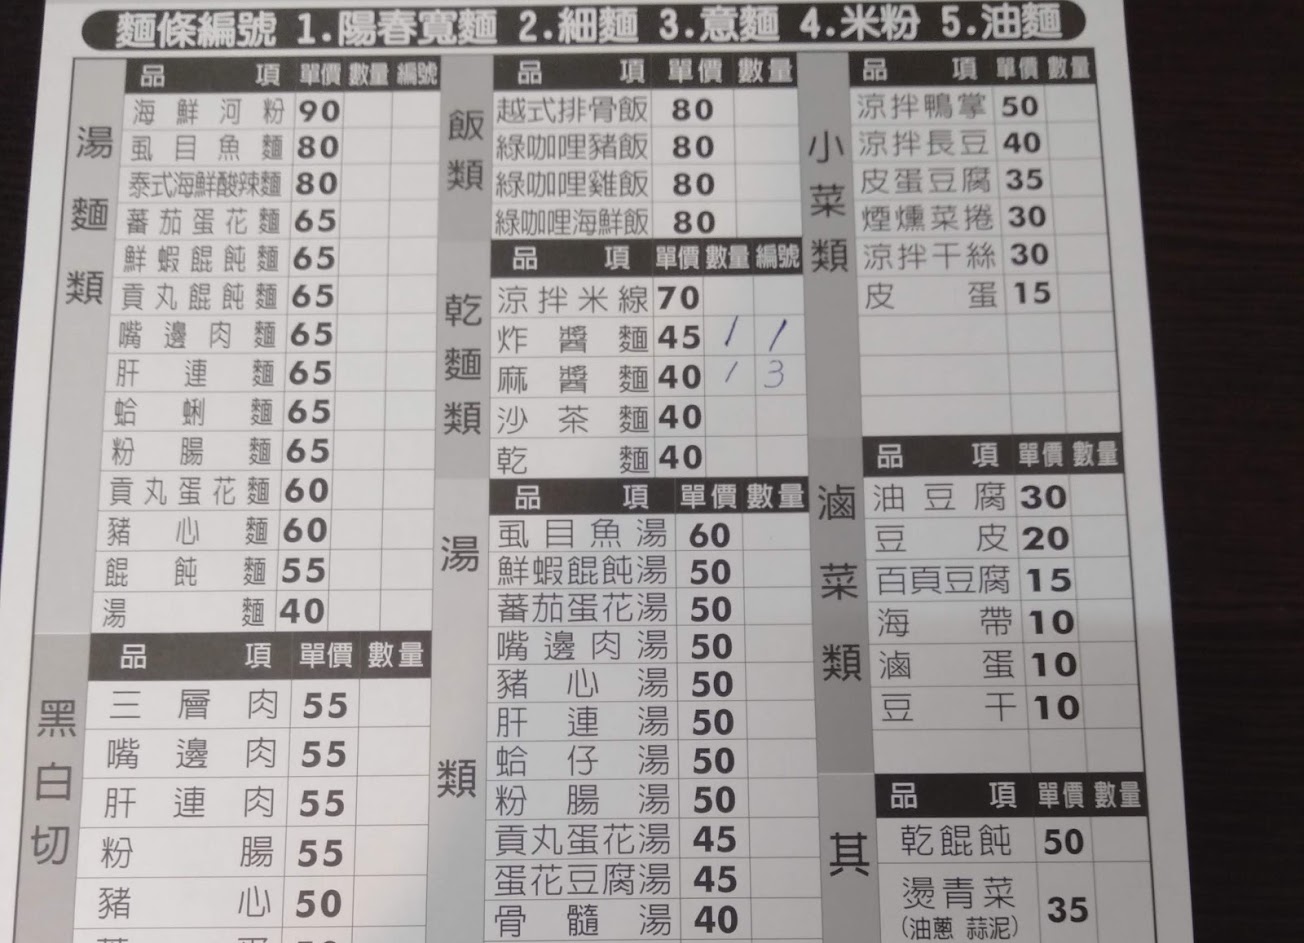 麵條編號 1.陽春寬麵 2.細麵 3.意麵 4.米粉 5.油麵
湯麵類
品項 單價 數量 編號
海鮮河粉 90
虱目魚麵 80
泰式海鮮酸辣麵 80
蕃茄蛋花麵 65
鮮蝦餛飩麵 65
貢丸餛飩麵 65
嘴邊肉麵 65
肝連麵 65
蛤蜊麵 65
粉腸麵 65
貢丸蛋花麵 60
豬心麵 60
餛飩麵 55
湯麵 40
黑白切
品項 單價 數量
三層肉 55
嘴邊肉 55
肝連肉 55
粉腸 55
豬心 50
飯類
品項 單價 數量
越式排骨飯 80
綠咖哩豬飯 80
綠咖哩雞飯 80
綠咖哩海鮮飯 80
乾麵類
品項 單價 數量 編號
涼拌米線 70
炸醬麵 45 1 1
麻醬麵 40 1 3
沙茶麵 40
乾麵 40
湯類
品項 單價 數量
虱目魚湯 60
鮮蝦餛飩湯 50
蕃茄蛋花湯 50
嘴邊肉湯 50
豬心湯 50
肝連湯 50
蛤仔湯 50
粉腸湯 50
貢丸蛋花湯 45
蛋花豆腐湯 45
骨髓湯 40
小菜類
品項 單價 數量
涼拌鴨掌 50
涼拌長豆 40
皮蛋豆腐 35
煙燻菜捲 30
涼拌干絲 30
皮蛋 15
滷菜類
品項 單價 數量
油豆腐 30
豆皮 20
百頁豆腐 15
海帶 10
滷蛋 10
豆干 10
其
品項 單價 數量
乾餛飩 50
燙青菜 35
(油蔥 蒜泥)